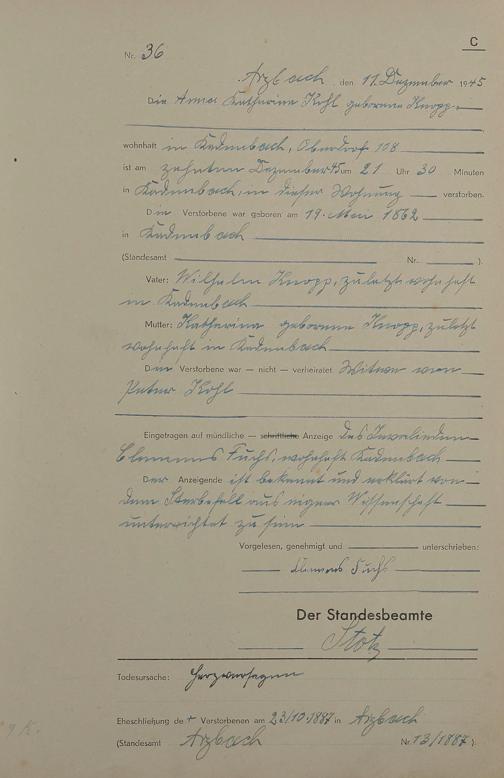 C
Nr. 36
Arzbach, den 11. Dezember 1945
Die Anna Katharina Kohl geborene Knopp
wohnhaft in Kadenbach, Oberdorf 108
ist am zehnten Dezember 45 um 21 Uhr 30 Minuten
in Kadenbach, in dieser Wohnung verstorben.
Die Verstorbene war geboren am 19. Mai 1862
in Kadenbach
(Standesamt Nr. ).
Vater: Wilhelm Knopp, zuletzt wohnhaft
in Kadenbach
Mutter: Katharina geborene Knopp, zuletzt
wohnhaft in Kadenbach
Die Verstorbene war — nicht — verheiratet Witwe von
Peter Kohl
Eingetragen auf mündliche — schriftliche Anzeige des Invaliden
Clemens Fuchs, wohnhaft Kadenbach
Der Anzeigende ist bekannt und erklärt von
dem Sterbefall aus eigner Wissenschaft
unterrichtet zu sein
Vorgelesen, genehmigt und unterschrieben:
Klemens Fuchs
Der Standesbeamte
Stotz
Todesursache: Herzversagen
Eheschließung der Verstorbenen am 23/10.1887 in Arzbach
(Standesamt Arzbach Nr. 13/1887).